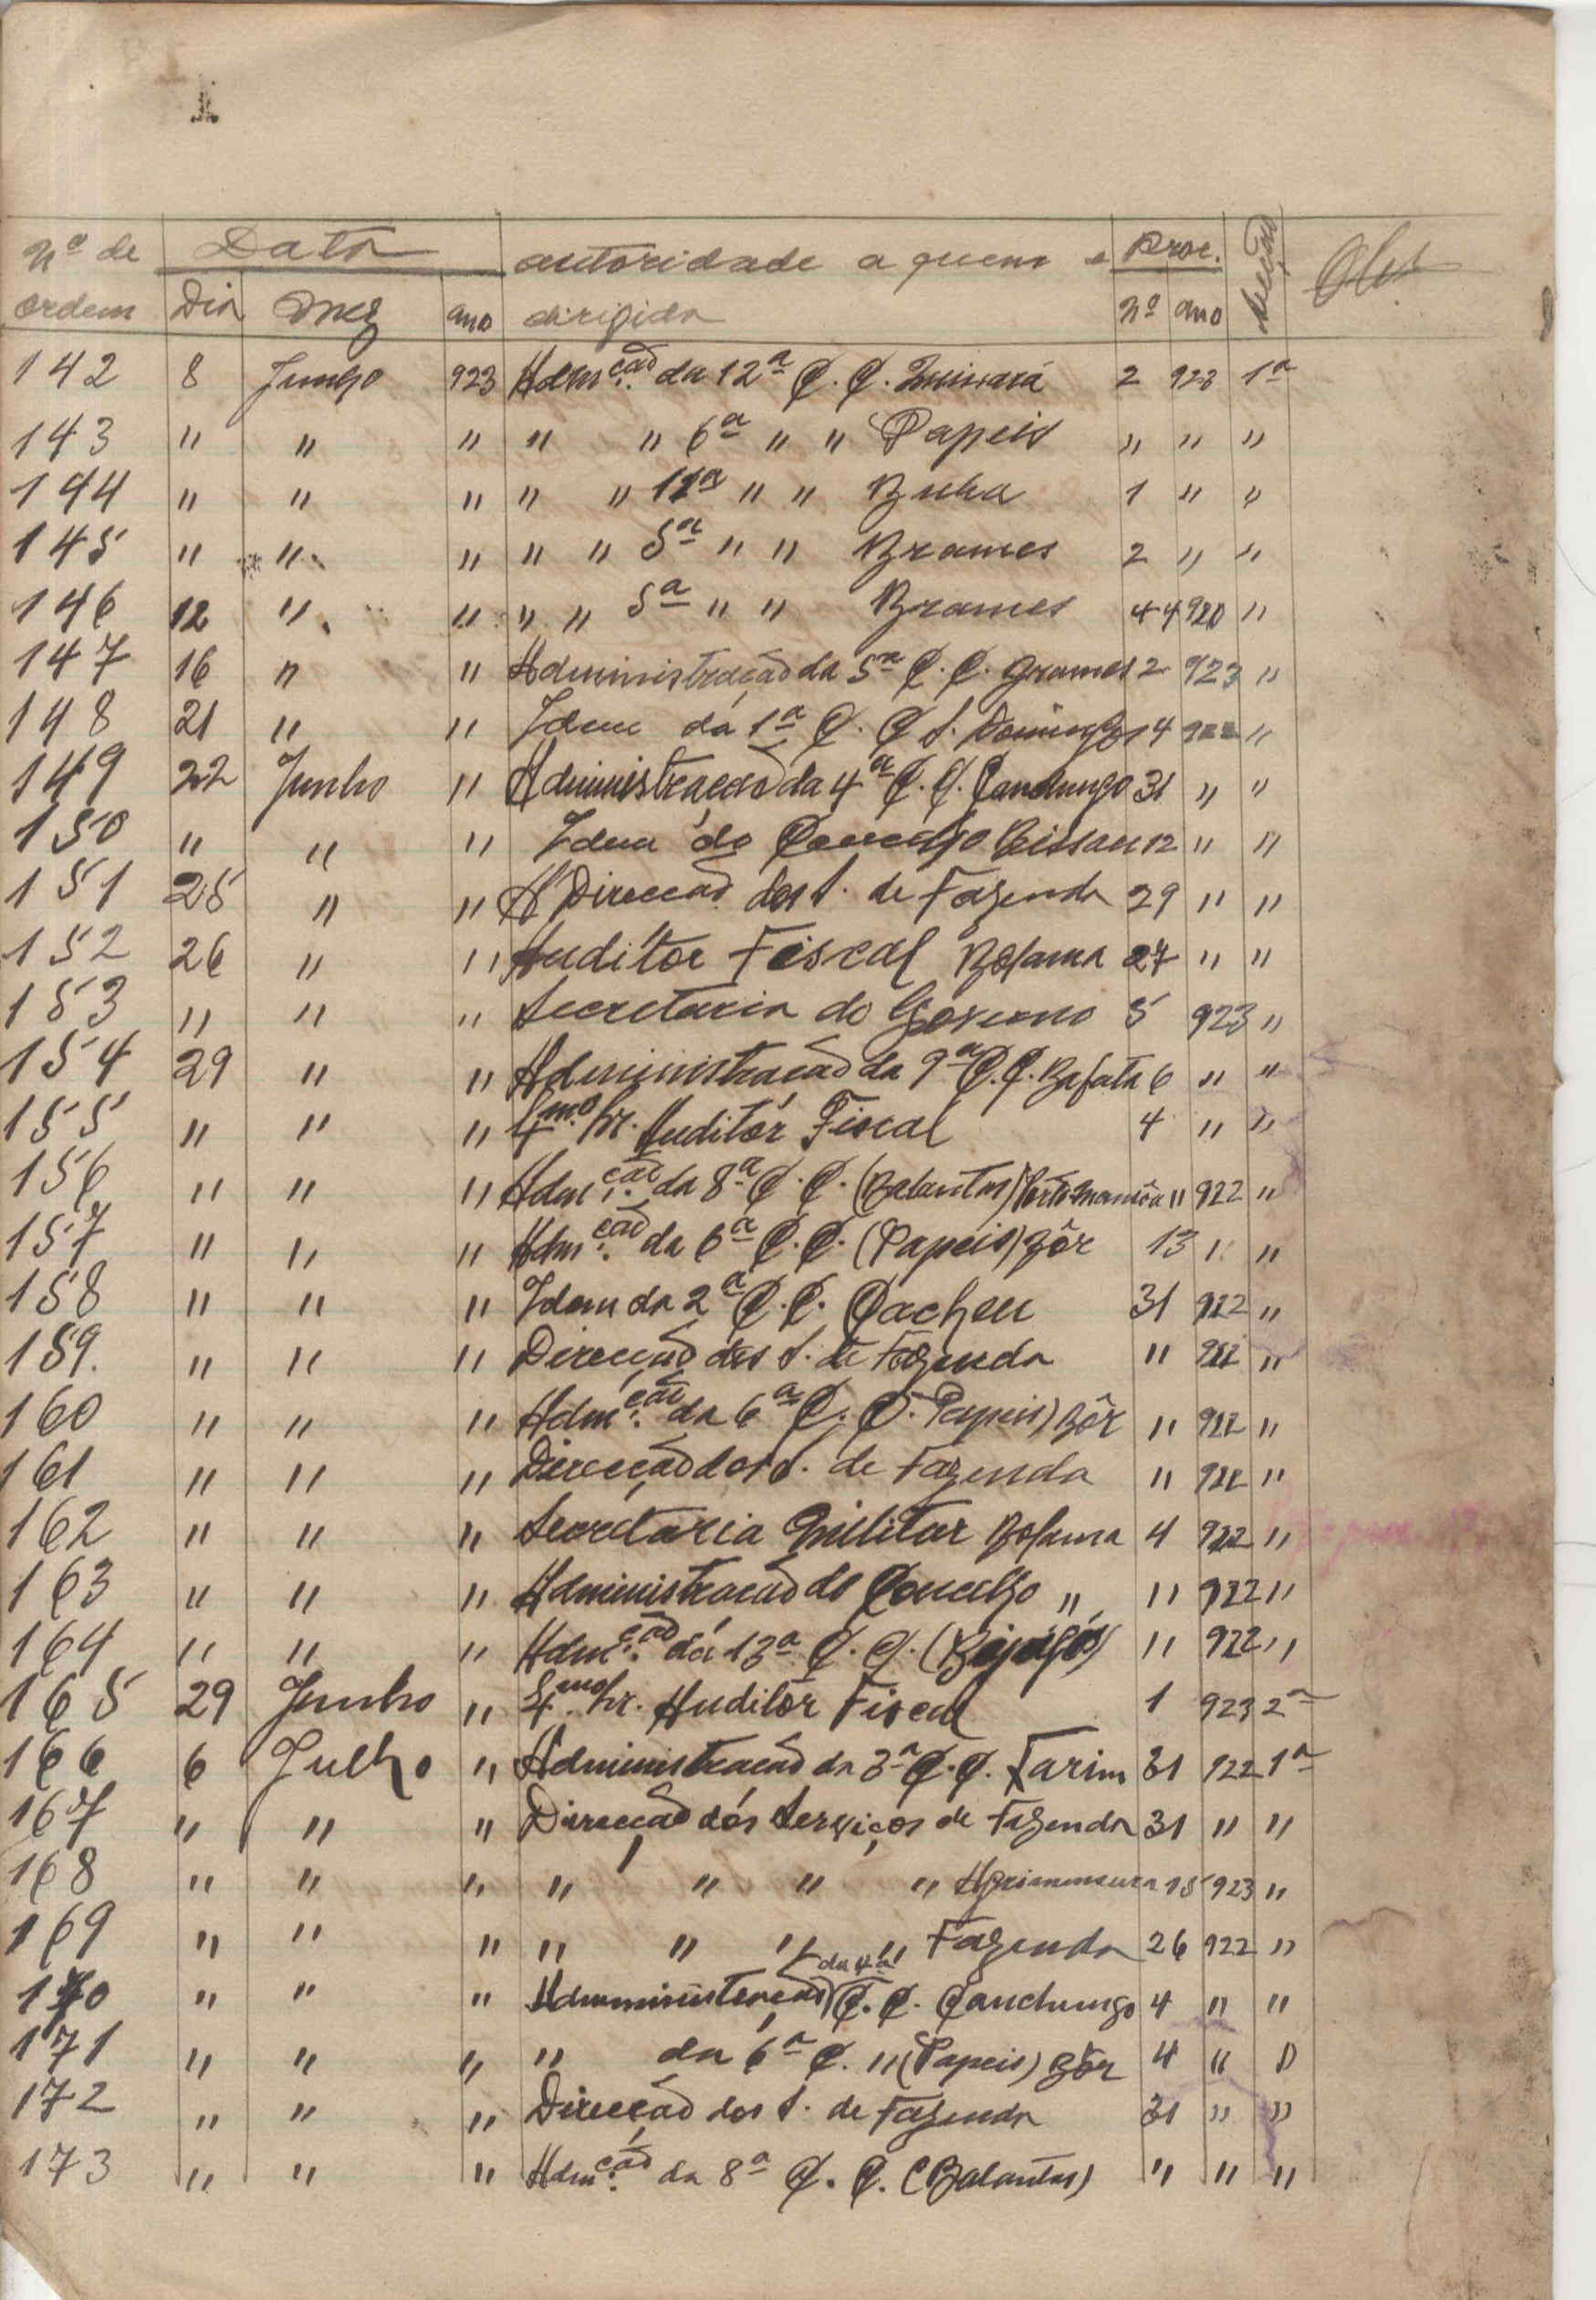 Nº de Data autoridade a quem é Proc. Secção Obs.
ordem Dia Mez ano dirigida Nº ano
142 8 Junho 923 Admção da 12ª C. C. Quinará 2 923 1ª
143 " " " " " 6ª " " Papeis " " "
144 " " " " " 11ª " " Buba 1 " "
145 " " " " " 5ª " " Brames 2 " "
146 12 " " " " 5ª " " Brames 44 920 "
147 16 " " Administração da 5ª C. C. Brames 2 923 "
148 21 " " Idem da 1ª C. C. S. Domingos 4 922 "
149 22 Junho " Administração da 4ª C. C. Canchungo 31 " "
150 " " " Idem do Concelho Bissau 12 " "
151 25 " " A Direcção dos S. de Fazenda 29 " "
152 26 " " Auditor Fiscal Bolama 27 " "
153 " " " Secretaria do Governo 5 923 "
154 29 " " Administração da 9ª C. C. Bafatá 6 " "
155 " " " Exmo Sr. Auditor Fiscal 4 " "
156 " " " Admção da 8ª C. C. (Balantas) Porto Mansôa " 922 "
157 " " " Admção da 6ª C. C. (Papeis) Bôr 13 " "
158 " " " Idem da 2ª C. C. Cacheu 31 922 "
159. " " " Direcção dos S. de Fazenda " 922 "
160 " " " Admção da 6ª C. C. Papeis) Bôr " 922 "
161 " " " Direcção dos S. de Fazenda " 922 "
162 " " " Secretaria Militar Bolama 4 922 "
163 " " " Administração do Concelho " " 922 "
164 " " " Admção da 13ª C. C. (Bijagós) " 922 "
165 29 Junho " Exmo Sr. Auditor Fiscal 1 923 2ª
166 6 Julho " Administração da 3ª C. C. Farim 31 922 1ª
167 " " " Direcção dos Serviços de Fazenda 31 " "
168 " " " " " " " Agrimensura 15 923 "
169 " " " " " " " Fazenda 26 922 "
170 " " " Administração da 4ª C. C. Canchungo 4 " "
171 " " " " da 6ª C. " (Papeis) Bôr 4 " "
172 " " " Direcção dos S. de Fazenda 31 " "
173 " " " Admção da 8ª C. C. (Balantas) " " "